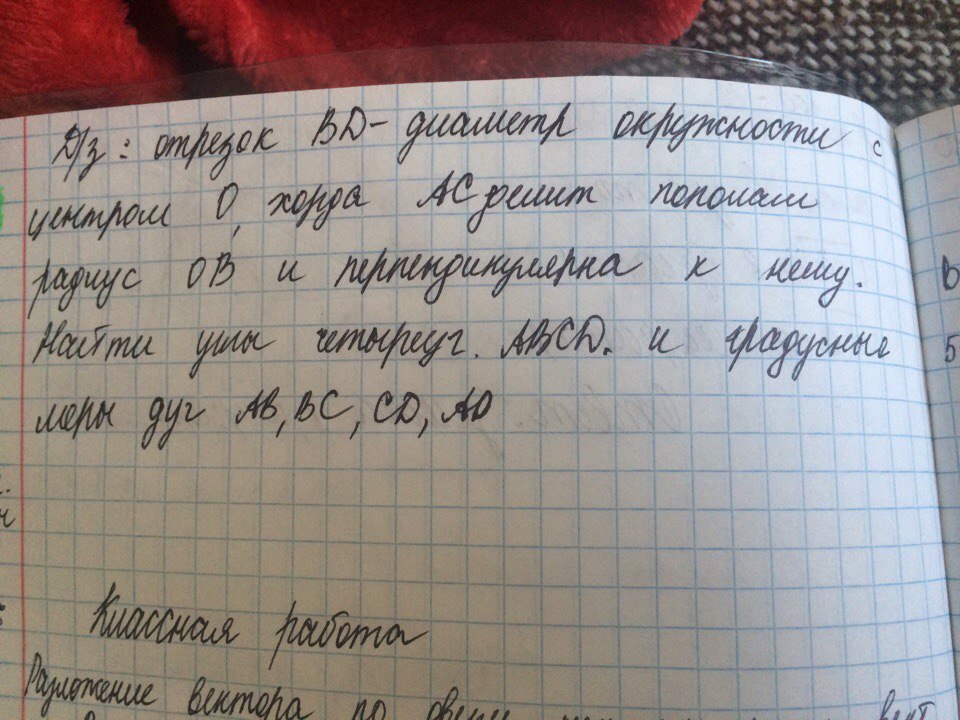 Д/з: отрезок BD- диаметр окружности с
центром O, хорда AC делит пополам
радиус OB и перпендикулярна к нему.
Найти углы четыреуг. ABCD. и градусные
меры дуг AB, BC, CD, AD
Классная работа
Разложение вектора по двум